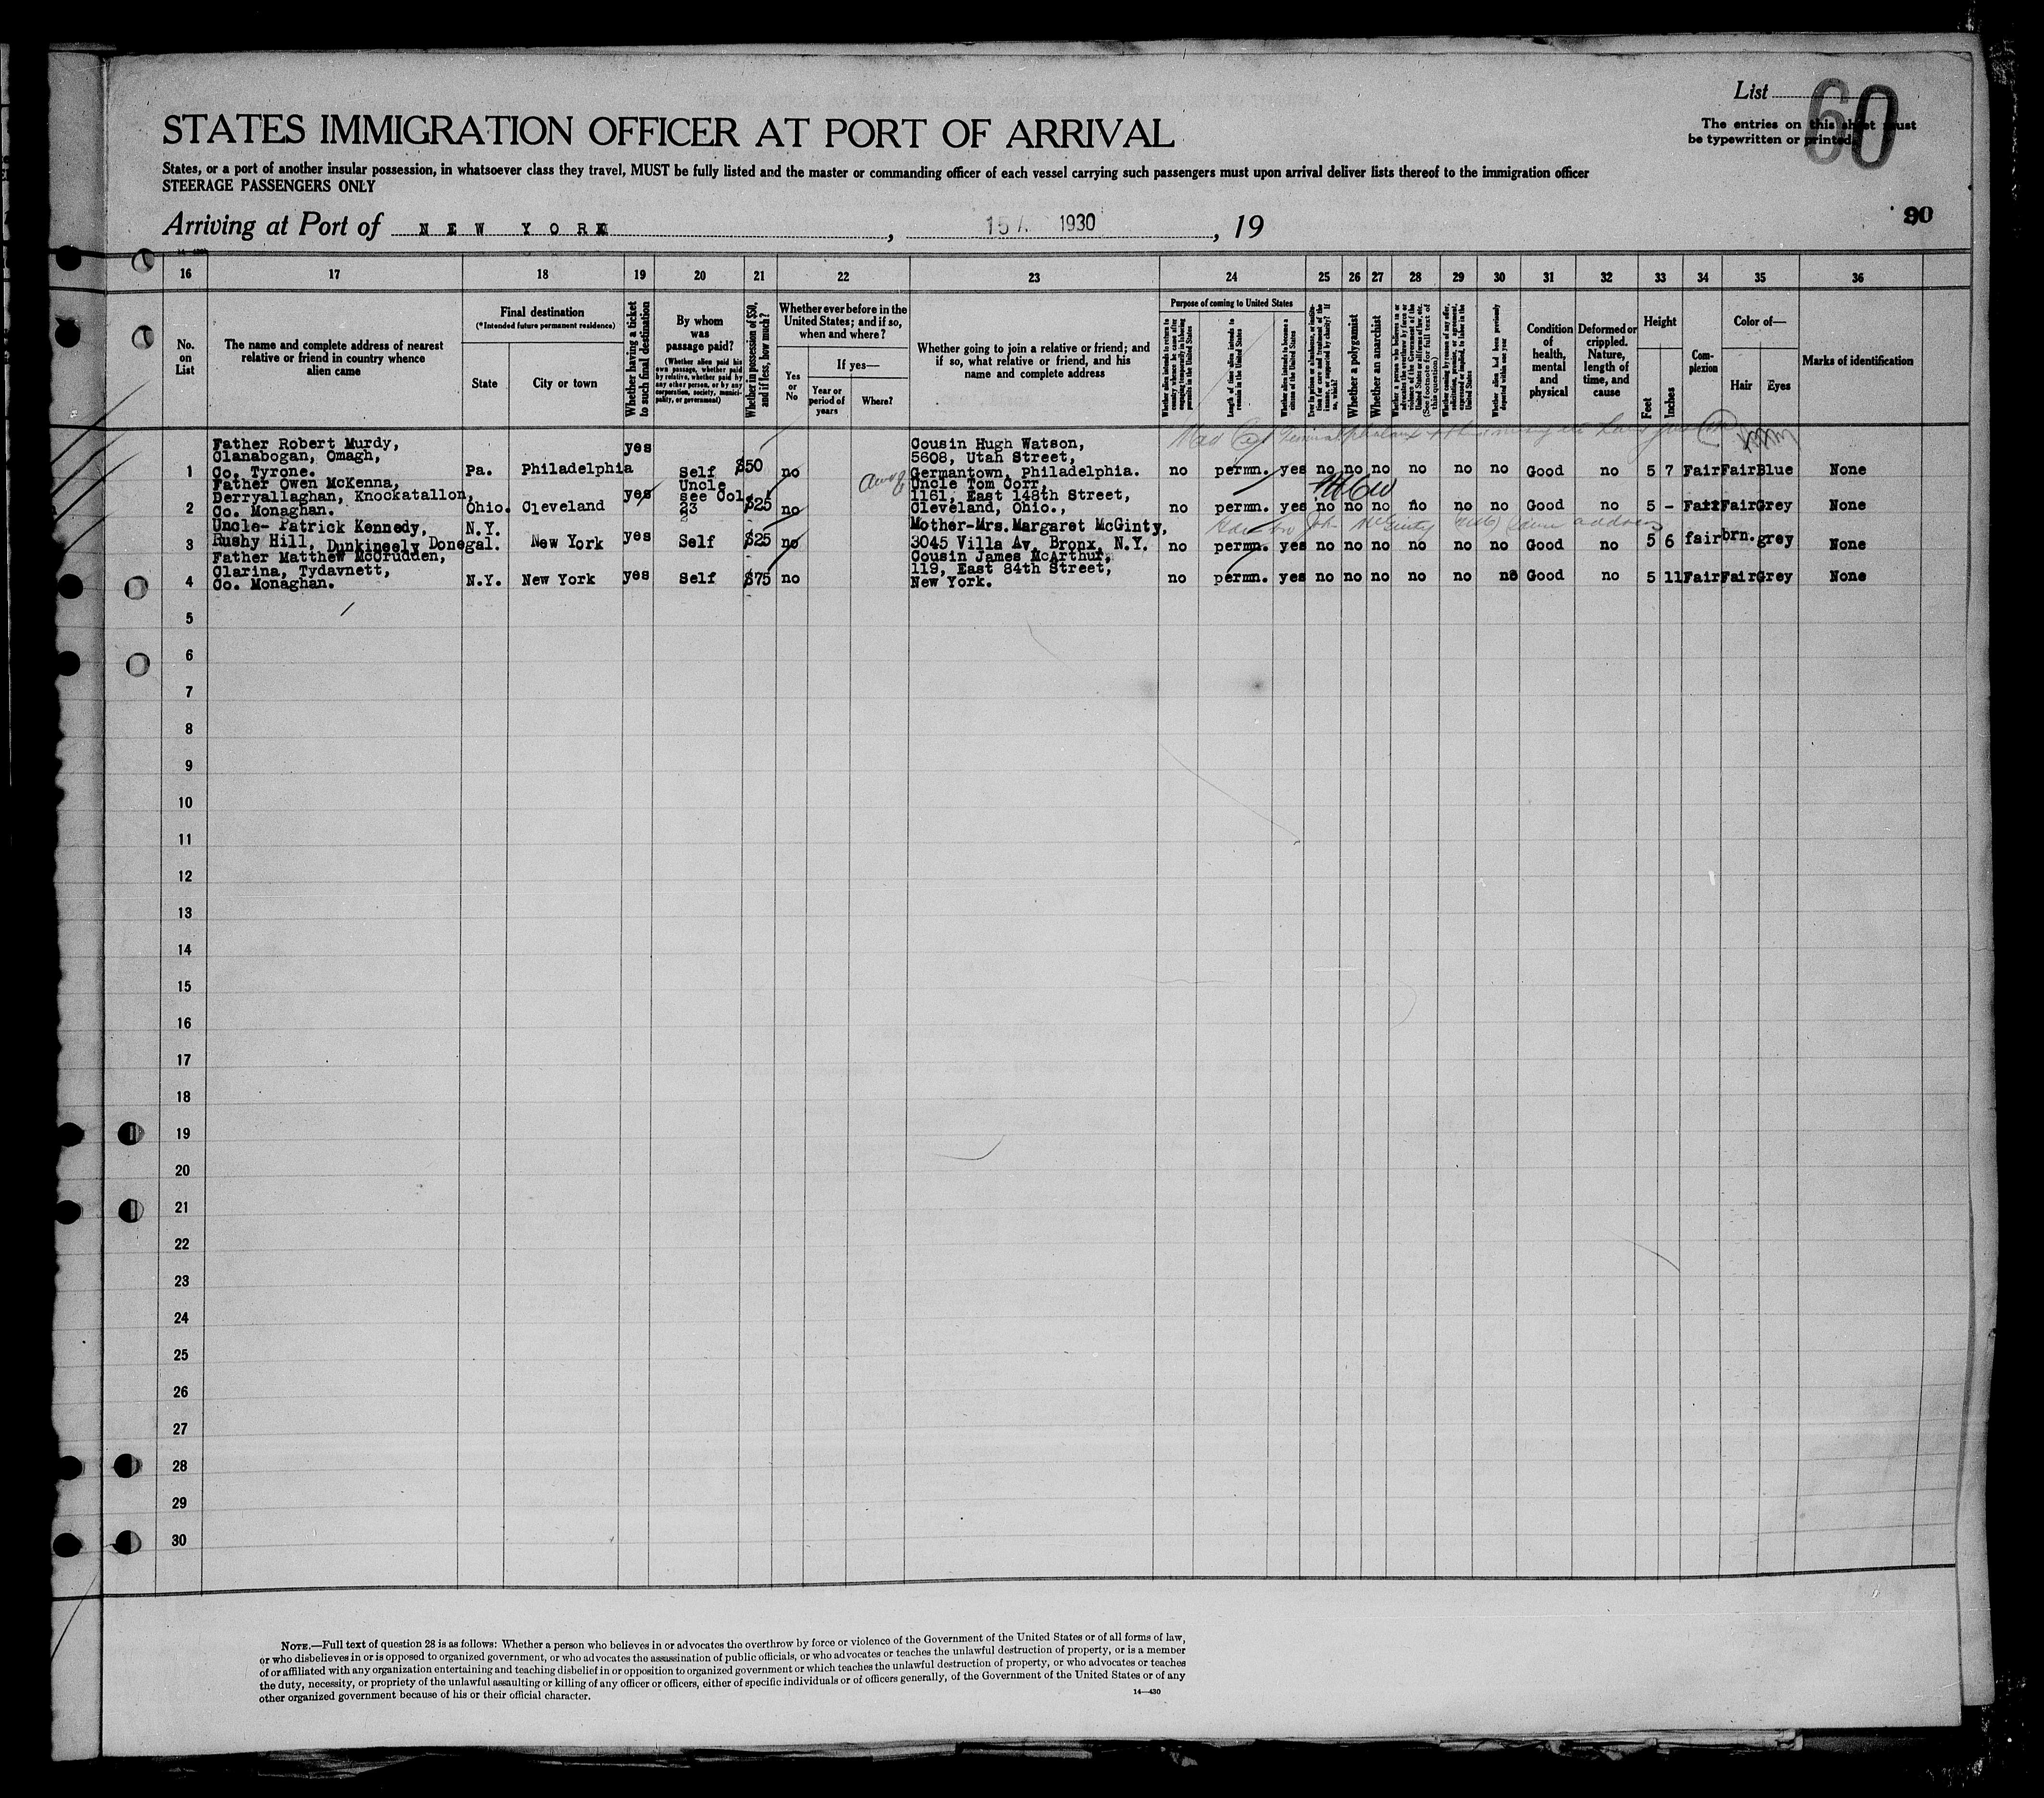 List
60
The entries on this sheet must
be typewritten or printed
STATES IMMIGRATION OFFICER AT PORT OF ARRIVAL
States, or a port of another insular possession, in whatsoever class they travel, MUST be fully listed and the master or commanding officer of each vessel carrying such passengers must upon arrival deliver lists thereof to the immigration officer
STEERAGE PASSENGERS ONLY
Arriving at Port of NEW YORK, 15 1930, 19
16 17 18 19 20 21 22 23 24 25 26 27 28 29 30 31 32 33 34 35 36
No. on List
The name and complete address of nearest relative or friend in country whence alien came
Final destination
(*Intended future permanent residence)
State
City or town
Whether having a ticket to such final destination
By whom was passage paid?
(Whether alien paid his own passage, whether paid by relative, whether paid by any other person, or by any corporation, society, municipality, or government)
Whether in possession of $50, and if less, how much?
Whether ever before in the United States; and if so, when and where?
Yes or No
If yes—
Year or period of years
Where?
Whether going to join a relative or friend; and if so, what relative or friend, and his name and complete address
Purpose of coming to United States
Whether alien intends to return to country whence he came after engaging temporarily in laboring pursuits in the United States
Length of time alien intends to remain in the United States
Whether alien intends to become a citizen of the United States
Ever in prison or almshouse, or institution for care and treatment of the insane, or supported by charity? If so, which?
Whether a polygamist
Whether an anarchist
Whether a person who believes in or advocates the overthrow by force or violence of the Government of the United States or all forms of law, etc. (See footnote for full text of this question)
Whether coming by reason of any offer, solicitation, promise, or agreement, expressed or implied, to labor in the United States
Whether alien had been previously deported within one year
Condition of health, mental and physical
Deformed or crippled. Nature, length of time, and cause
Height
Feet
Inches
Complexion
Color of—
Hair
Eyes
Marks of identification
Father Robert Murdy,
Clanabogan, Omagh,
1 Co. Tyrone. Pa. Philadelphia yes Self $50 no Cousin Hugh Watson,
5608, Utah Street,
Germantown, Philadelphia. no permn. yes no no no no no no Good no 5 7 Fair Fair Blue None
Father Owen McKenna,
Derryallaghan, Knockatallon,
2 Co. Monaghan. Ohio. Cleveland yes Uncle see Col. 23 $25 no Uncle Tom Corr,
1161, East 148th Street,
Cleveland, Ohio., no permn. yes no no no no no no Good no 5 - Fair Fair Grey None
Uncle- Patrick Kennedy,
3 Rushy Hill, Dunkineely Donegal. N.Y. New York yes Self $25 no Mother-Mrs. Margaret McGinty,
3045 Villa Av, Bronx, N.Y. no permn. yes no no no no no no Good no 5 6 fair brn. grey None
Father Matthew McCrudden,
Clarina, Tydavnett,
4 Co. Monaghan. N.Y. New York yes Self $75 no Cousin James McArthur,
119, East 84th Street,
New York. no permn. yes no no no no no no Good no 5 11 Fair Fair Grey None
5
6
7
8
9
10
11
12
13
14
15
16
17
18
19
20
21
22
23
24
25
26
27
28
29
30
NOTE.—Full text of question 28 is as follows: Whether a person who believes in or advocates the overthrow by force or violence of the Government of the United States or of all forms of law,
or who disbelieves in or is opposed to organized government, or who advocates the assassination of public officials, or who advocates or teaches the unlawful destruction of property, or is a member
of or affiliated with any organization entertaining and teaching disbelief in or opposition to organized government or which teaches the unlawful destruction of property, or who advocates or teaches
the duty, necessity, or propriety of the unlawful assaulting or killing of any officer or officers, either of specific individuals or of officers generally, of the Government of the United States or of any
other organized government because of his or their official character.
14—430